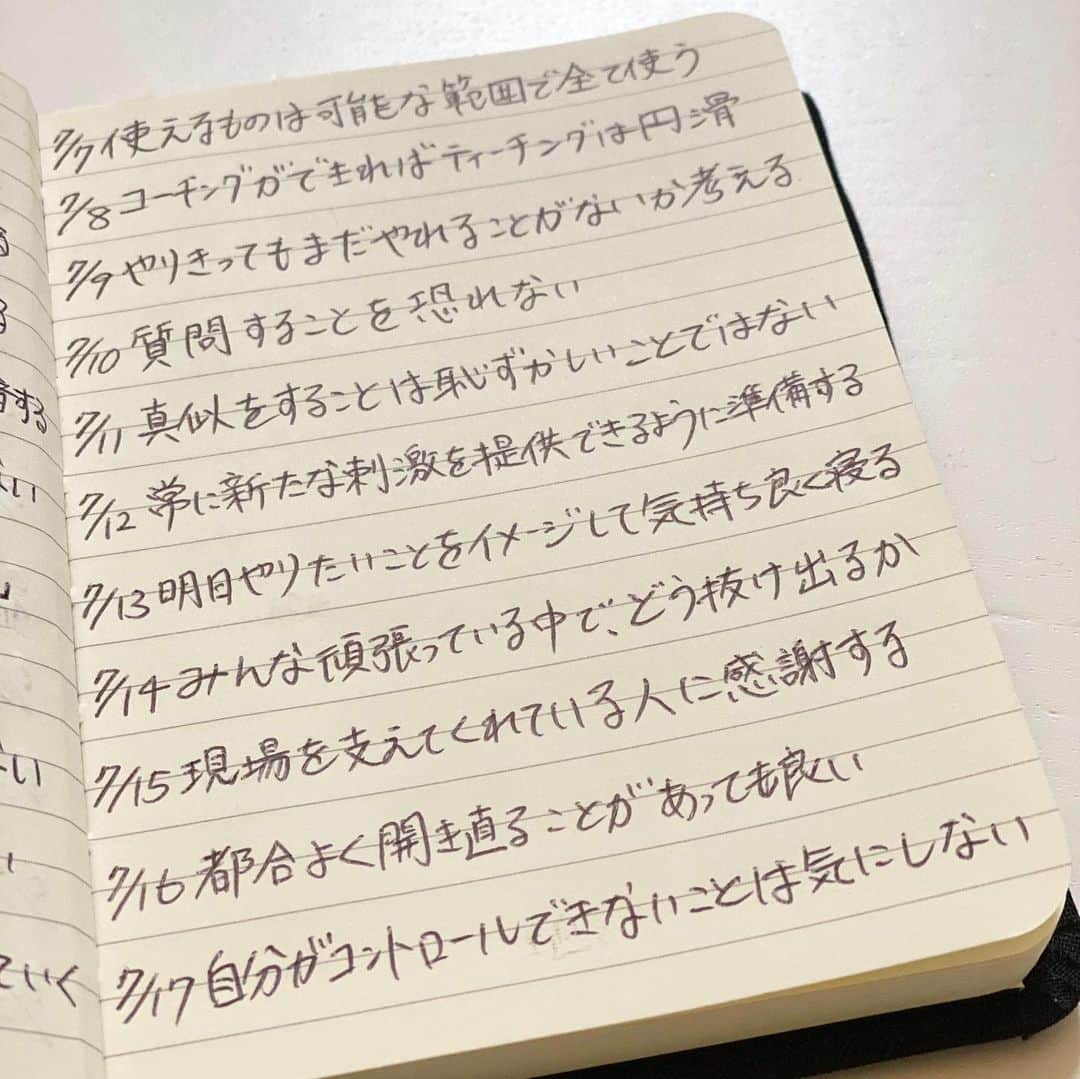 7/7 使えるものは可能な範囲で全て使う
7/8 コーチングができればティーチングは円滑
7/9 やりきってもまだやれることがないか考える
7/10 質問することを恐れない
7/11 真似をすることは恥ずかしいことではない
7/12 常に新たな刺激を提供できるように準備する
7/13 明日やりたいことをイメージして気持ち良く寝る
7/14 みんな頑張っている中で、どう抜け出るか
7/15 現場を支えてくれている人に感謝する
7/16 都合よく開き直ることがあっても良い
7/17 自分がコントロールできないことは気にしない
する
ていく